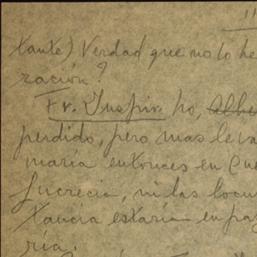 11
tante) Verdad que no lo he
ración?
Fr. Inspir. ho,
perdido, pero mas le va
maria entonces en
Lucrecia, ni las locu
tancia estaria en paz
ria.